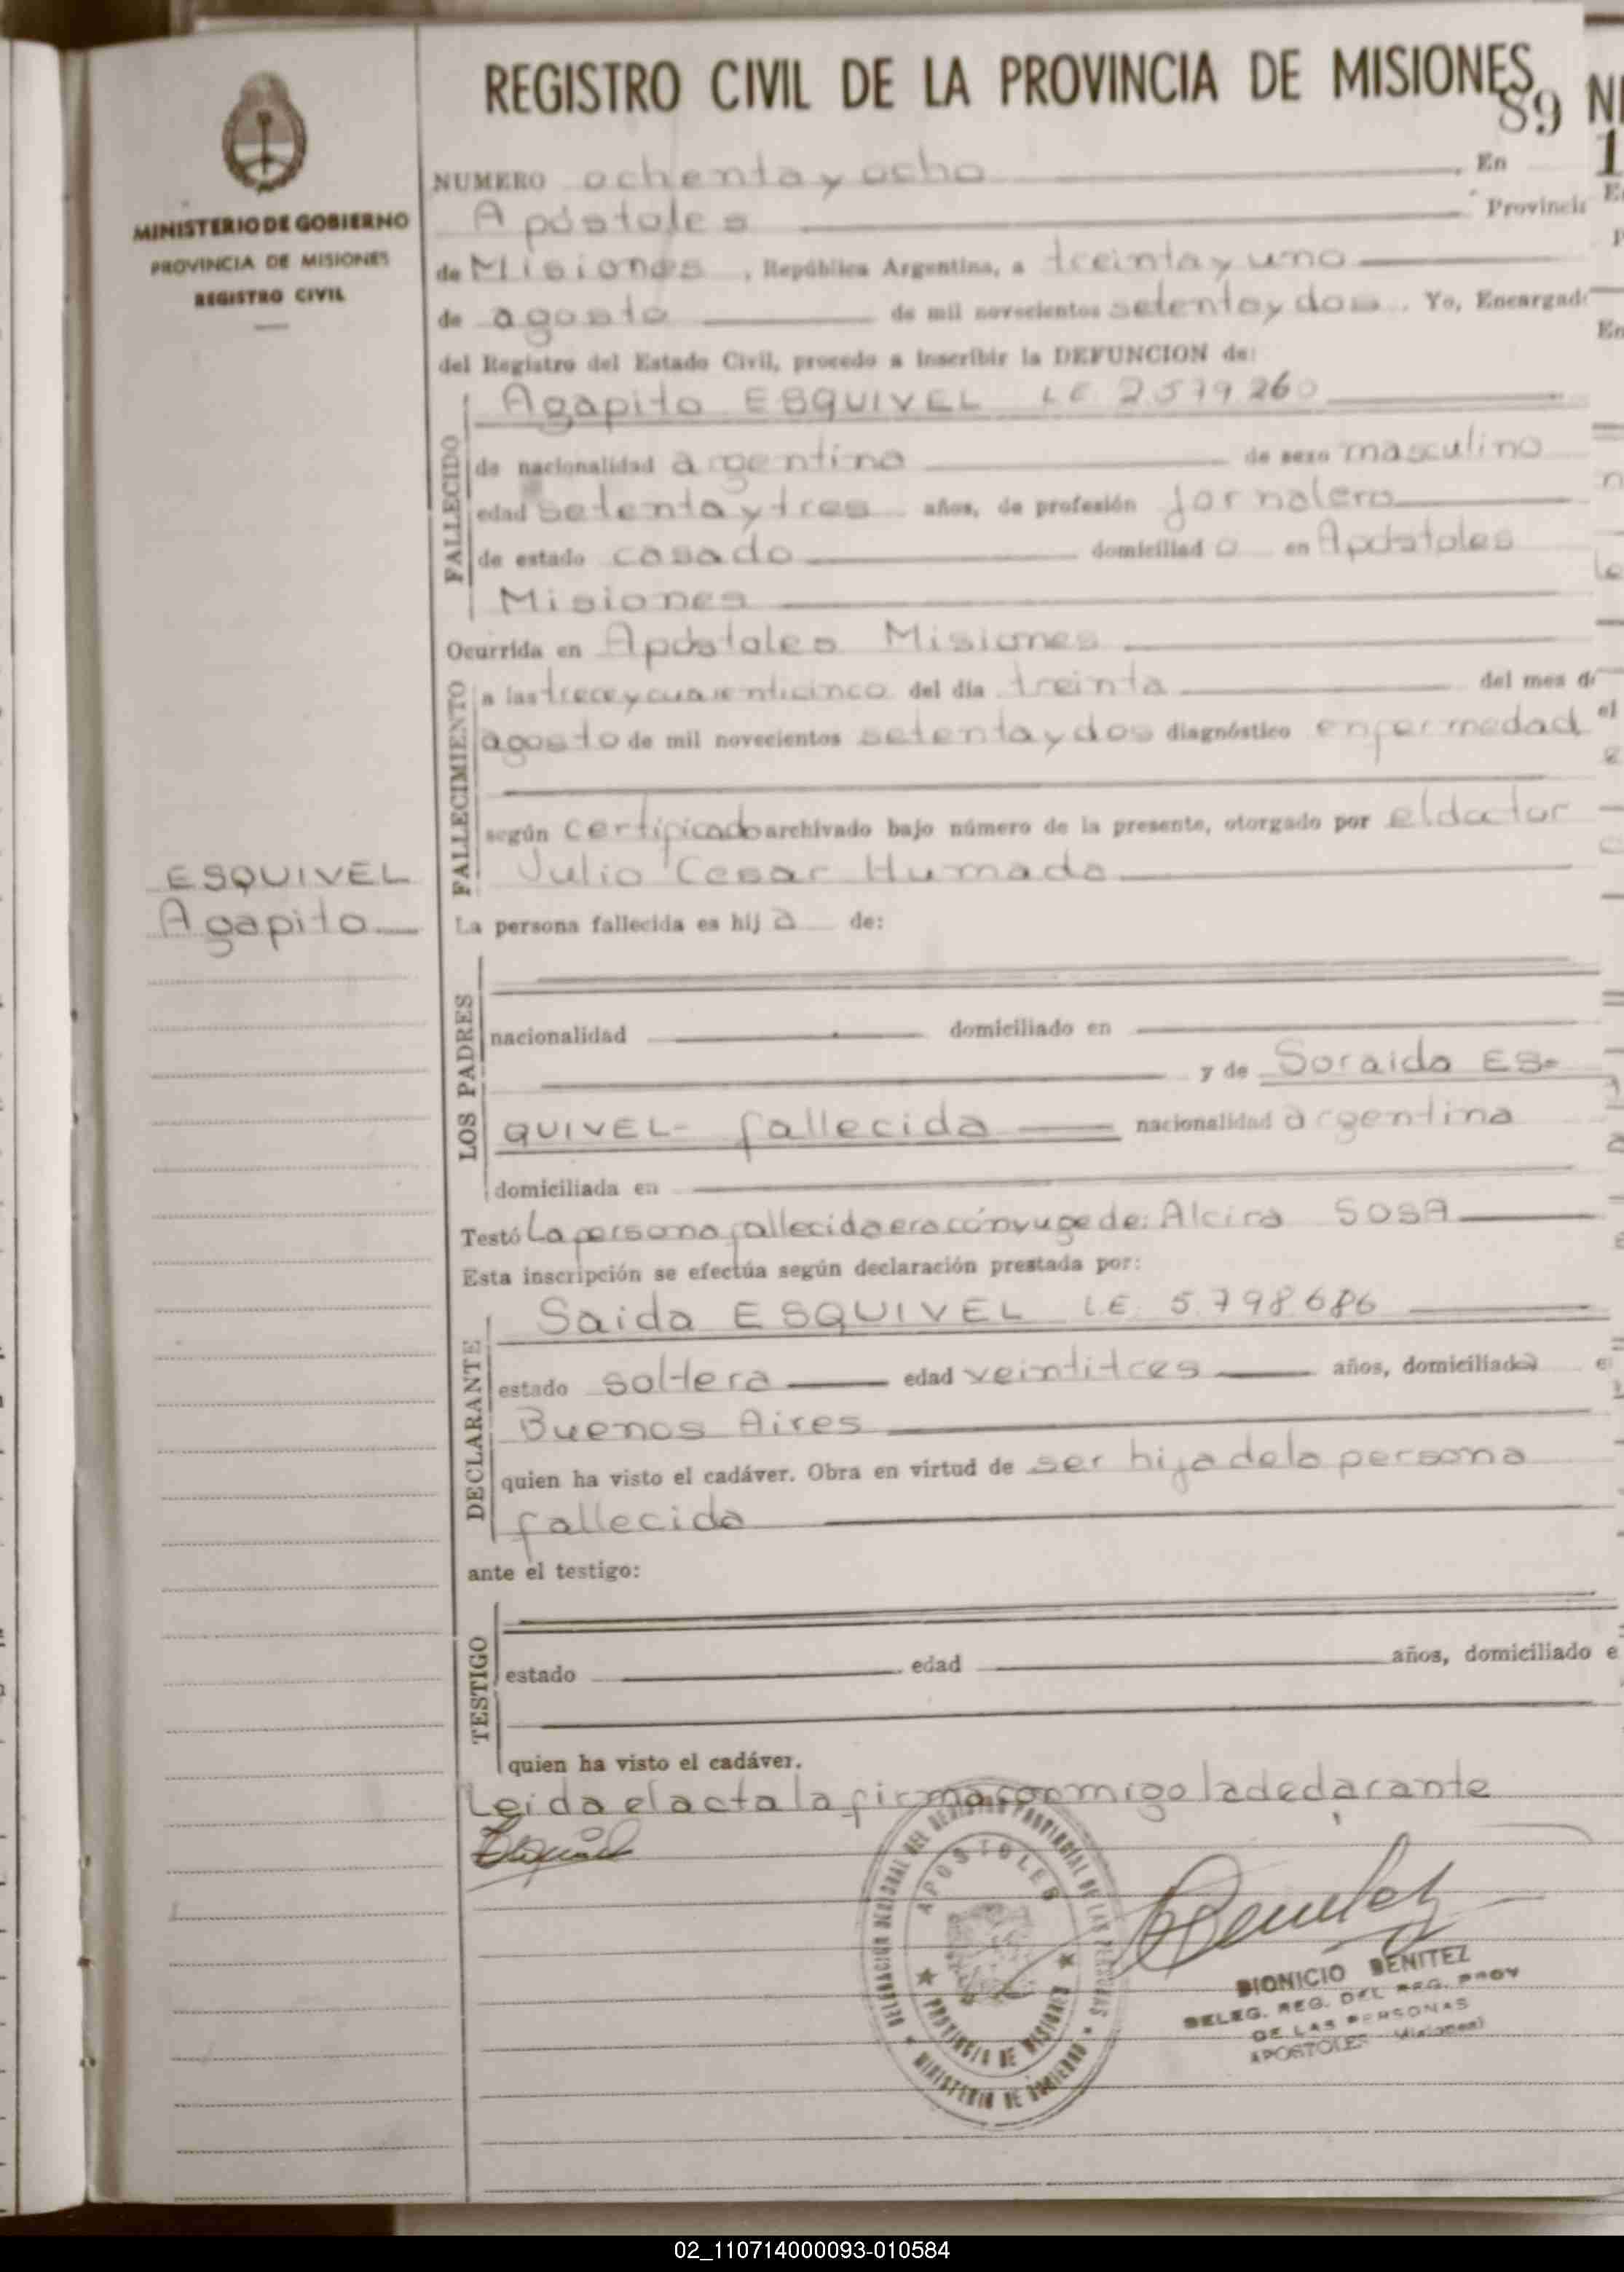 REGISTRO CIVIL DE LA PROVINCIA DE MISIONES
89
MINISTERIO DE GOBIERNO
PROVINCIA DE MISIONES
REGISTRO CIVIL
NUMERO ochenta y ocho , En
Apóstoles Provincia
de Misiones , República Argentina, a treinta y uno
de agosto de mil novecientos setenta y dos . Yo, Encargado
del Registro del Estado Civil, procedo a inscribir la DEFUNCION de:
FALLECIDO
Agapito ESQUIVEL L.E. 2.579.260
de nacionalidad argentina de sexo masculino
edad setenta y tres años, de profesión jornalero
de estado casado domiciliado en Apóstoles
Misiones
Ocurrida en Apóstoles Misiones
FALLECIMIENTO
a las trece y cuarenticinco del día treinta del mes de
agosto de mil novecientos setenta y dos diagnóstico enfermedad
según certificado archivado bajo número de la presente, otorgado por el doctor
Julio Cesar Humada
ESQUIVEL
Agapito
La persona fallecida es hija de:
LOS PADRES
nacionalidad domiciliado en
y de Soraida ES-
QUIVEL- fallecida nacionalidad argentina
domiciliada en
Testó La persona fallecida era cónyuge de: Alcira SOSA
Esta inscripción se efectúa según declaración prestada por:
DECLARANTE
Saida ESQUIVEL L.E. 5.798.686
estado soltera edad veintitres años, domiciliada
Buenos Aires
quien ha visto el cadáver. Obra en virtud de ser hija de la persona
fallecida
ante el testigo:
TESTIGO
estado edad años, domiciliado e
quien ha visto el cadáver.
Leida el acta la firma conmigo la declarante
Esquivel
DELEGACION REGIONAL DEL REGISTRO PROVINCIAL DE LAS PERSONAS
APOSTOLES
PROVINCIA DE MISIONES
MINISTERIO DE GOBIERNO
DBenitez
DIONICIO BENITEZ
DELEG. REG. DEL REG. PROV
DE LAS PERSONAS
APOSTOLES (Misiones)
02_110714000093-010584